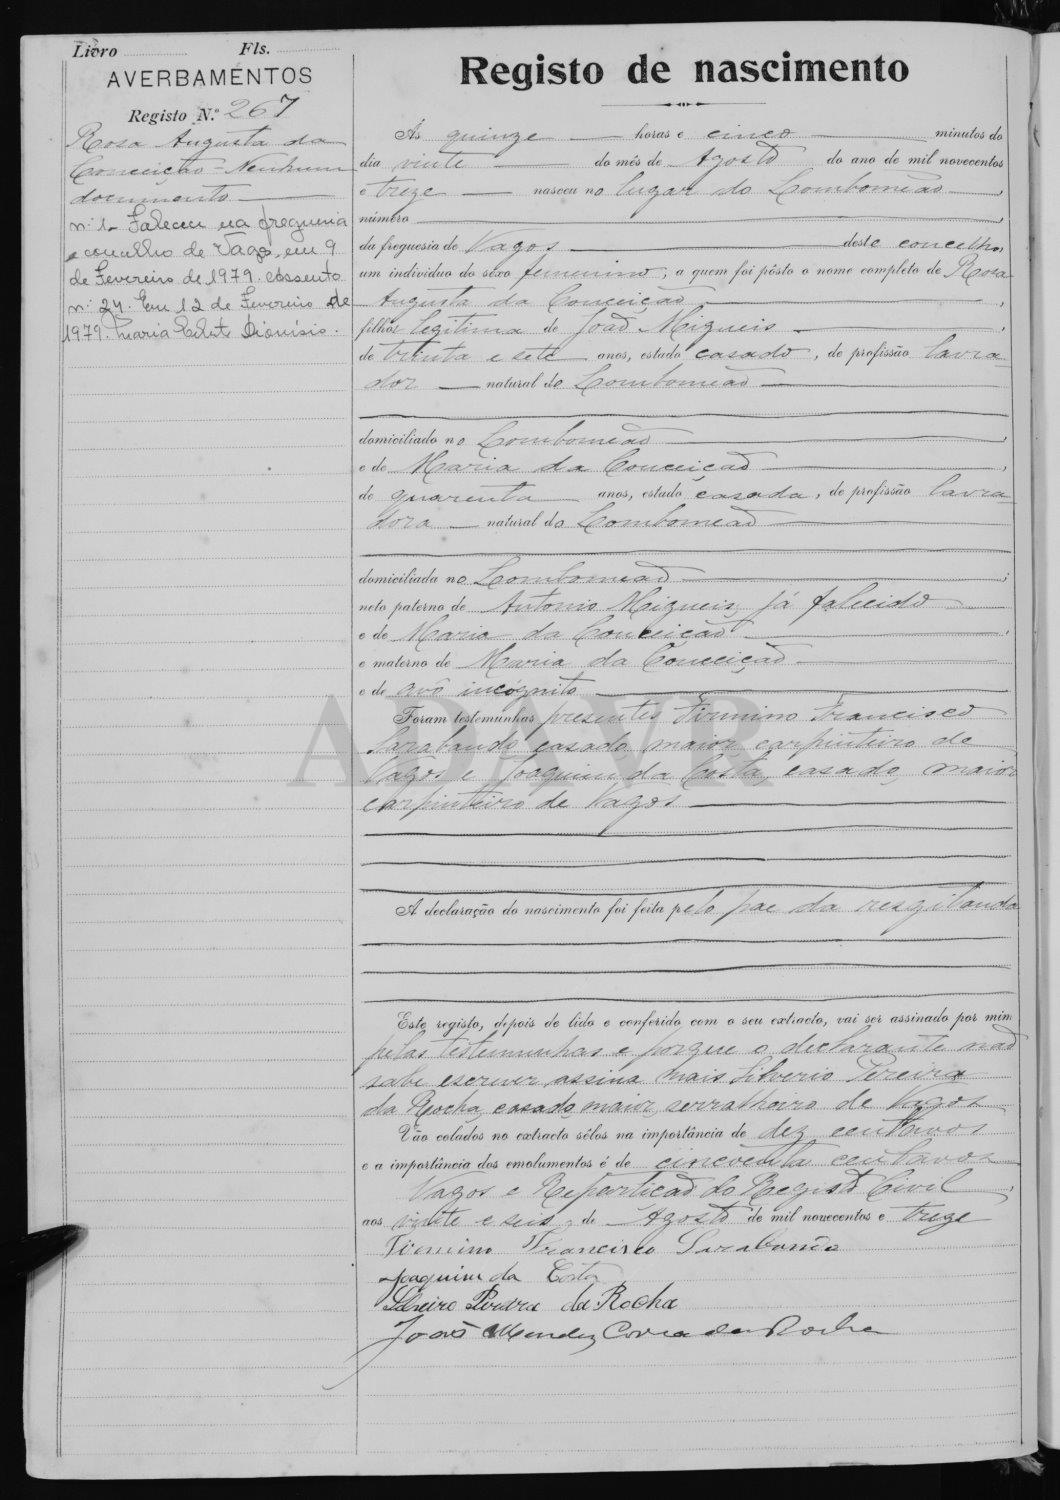 Livro Fls.
AVERBAMENTOS
Registo N.º 267
Rosa Augusta da
Conceição = Nenhum
documento
n.º 1 - Faleceu na freguesia
e concelho de Vagos, em 9
de Fevereiro de 1979. Assento
n.º 24. Em 12 de Fevereiro de
1979. Maria Dionísio.
Registo de nascimento
Ás quinze horas e cinco minutos do
dia vinte do mês de Agosto do ano de mil novecentos
e treze nasceu no lugar do Lombomeão,
número
da freguesia de Vagos deste concelho,
um individuo do séxo femenino, a quem foi pôsto o nome completo de Rosa
Augusta da Conceição,
filha legitima de João Migueis
de trinta e sete anos, estado casado, de profissão lavra-
dor natural do Lombomeão
domiciliado no Lombomeão,
e de Maria da Conceição,
de quarenta anos, estado casada, de profissão lavra-
dora natural do Lombomeão
domiciliada no Lombomeão;
neto paterno de Antonio Migueis, já falecido
e de Maria da Conceição,
e materno de Maria da Conceição
e de avô incógnito
Foram testemunhas presentes Firmino Francisco
Sarabando, casado, maior, carpinteiro de
Vagos e Joaquim da Costa, casado, maior
carpinteiro de Vagos
ADAVR
A declaração do nascimento foi feita pelo pae da resgitanda
Este registo, depois de lido e conferido com o seu extracto, vai ser assinado por mim,
pelas testemunhas e porque o declarante não
sabe escrever, assina mais Silverio Pereira
da Rocha, casado, maior, serralheiro de Vagos
Vão colados no extracto sêlos na importância de dez centavos
e a importância dos emolumentos é de cincoenta centavos
Vagos e Repartição do Registo Civil,
aos vinte e seis de Agosto de mil novecentos e treze
Firmino Francisco Sarabando
Joaquim da Costa
Silveiro Pereira da Rocha
João Mendes Correa da Rocha